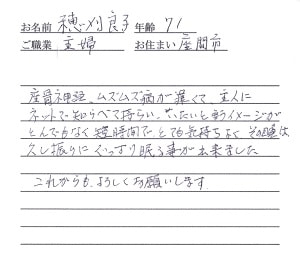 お名前 穂刈良子 年齢 71
ご職業 主婦 お住まい 座間市
座骨神経、ムズムズ病が辛くて、主人に
ネットで知らべて持らい、いたいと言うイメージが
とんでもなく短時間でとても気持ちよく その晩は
久し振りにぐっすり眠る事が出来ました
これからも、よろしくお願いします